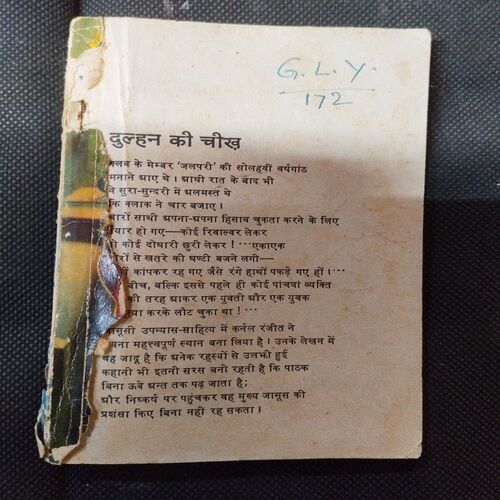 G. L. Y.
172
दुल्हन की चीख
के मेम्बर 'जलपरी' की सोलहवीं वर्षगांठ
मनाने आए थे । आधी रात के बाद भी
सुरा-सुन्दरी में अलमस्त थे
कि क्लाक ने चार बजाए ।
साथी अपना-अपना हिसाब चुकता करने के लिए
हो गए—कोई रिवाल्वर लेकर
कोई दोधारी छुरी लेकर ! ···एकाएक
से खतरे की घण्टी बजने लगी—
कांपकर रह गए जैसे रंगे हाथों पकड़े गए हों । ···
बीच, बल्कि इससे पहले ही कोई पांचवा व्यक्ति
की तरह आकर एक युवती और एक युवक
करके लौट चुका था ! ···
उपन्यास-साहित्य में कर्नल रंजीत ने
महत्त्वपूर्ण स्थान बना लिया है । उनके लेखन में
वह जादू है कि अनेक रहस्यों से उलझी हुई
कहानी भी इतनी सरस बनी रहती है कि पाठक
बिना ऊबे अन्त तक पढ़ जाता है;
और निष्कर्ष पर पहुंचकर वह मुख्य जासूस की
प्रशंसा किए बिना नहीं रह सकता ।